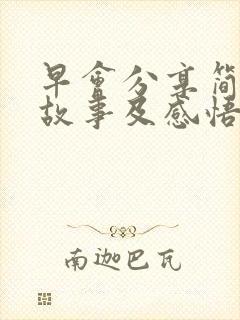 早會分享简
故事及感悟
南迦巴瓦